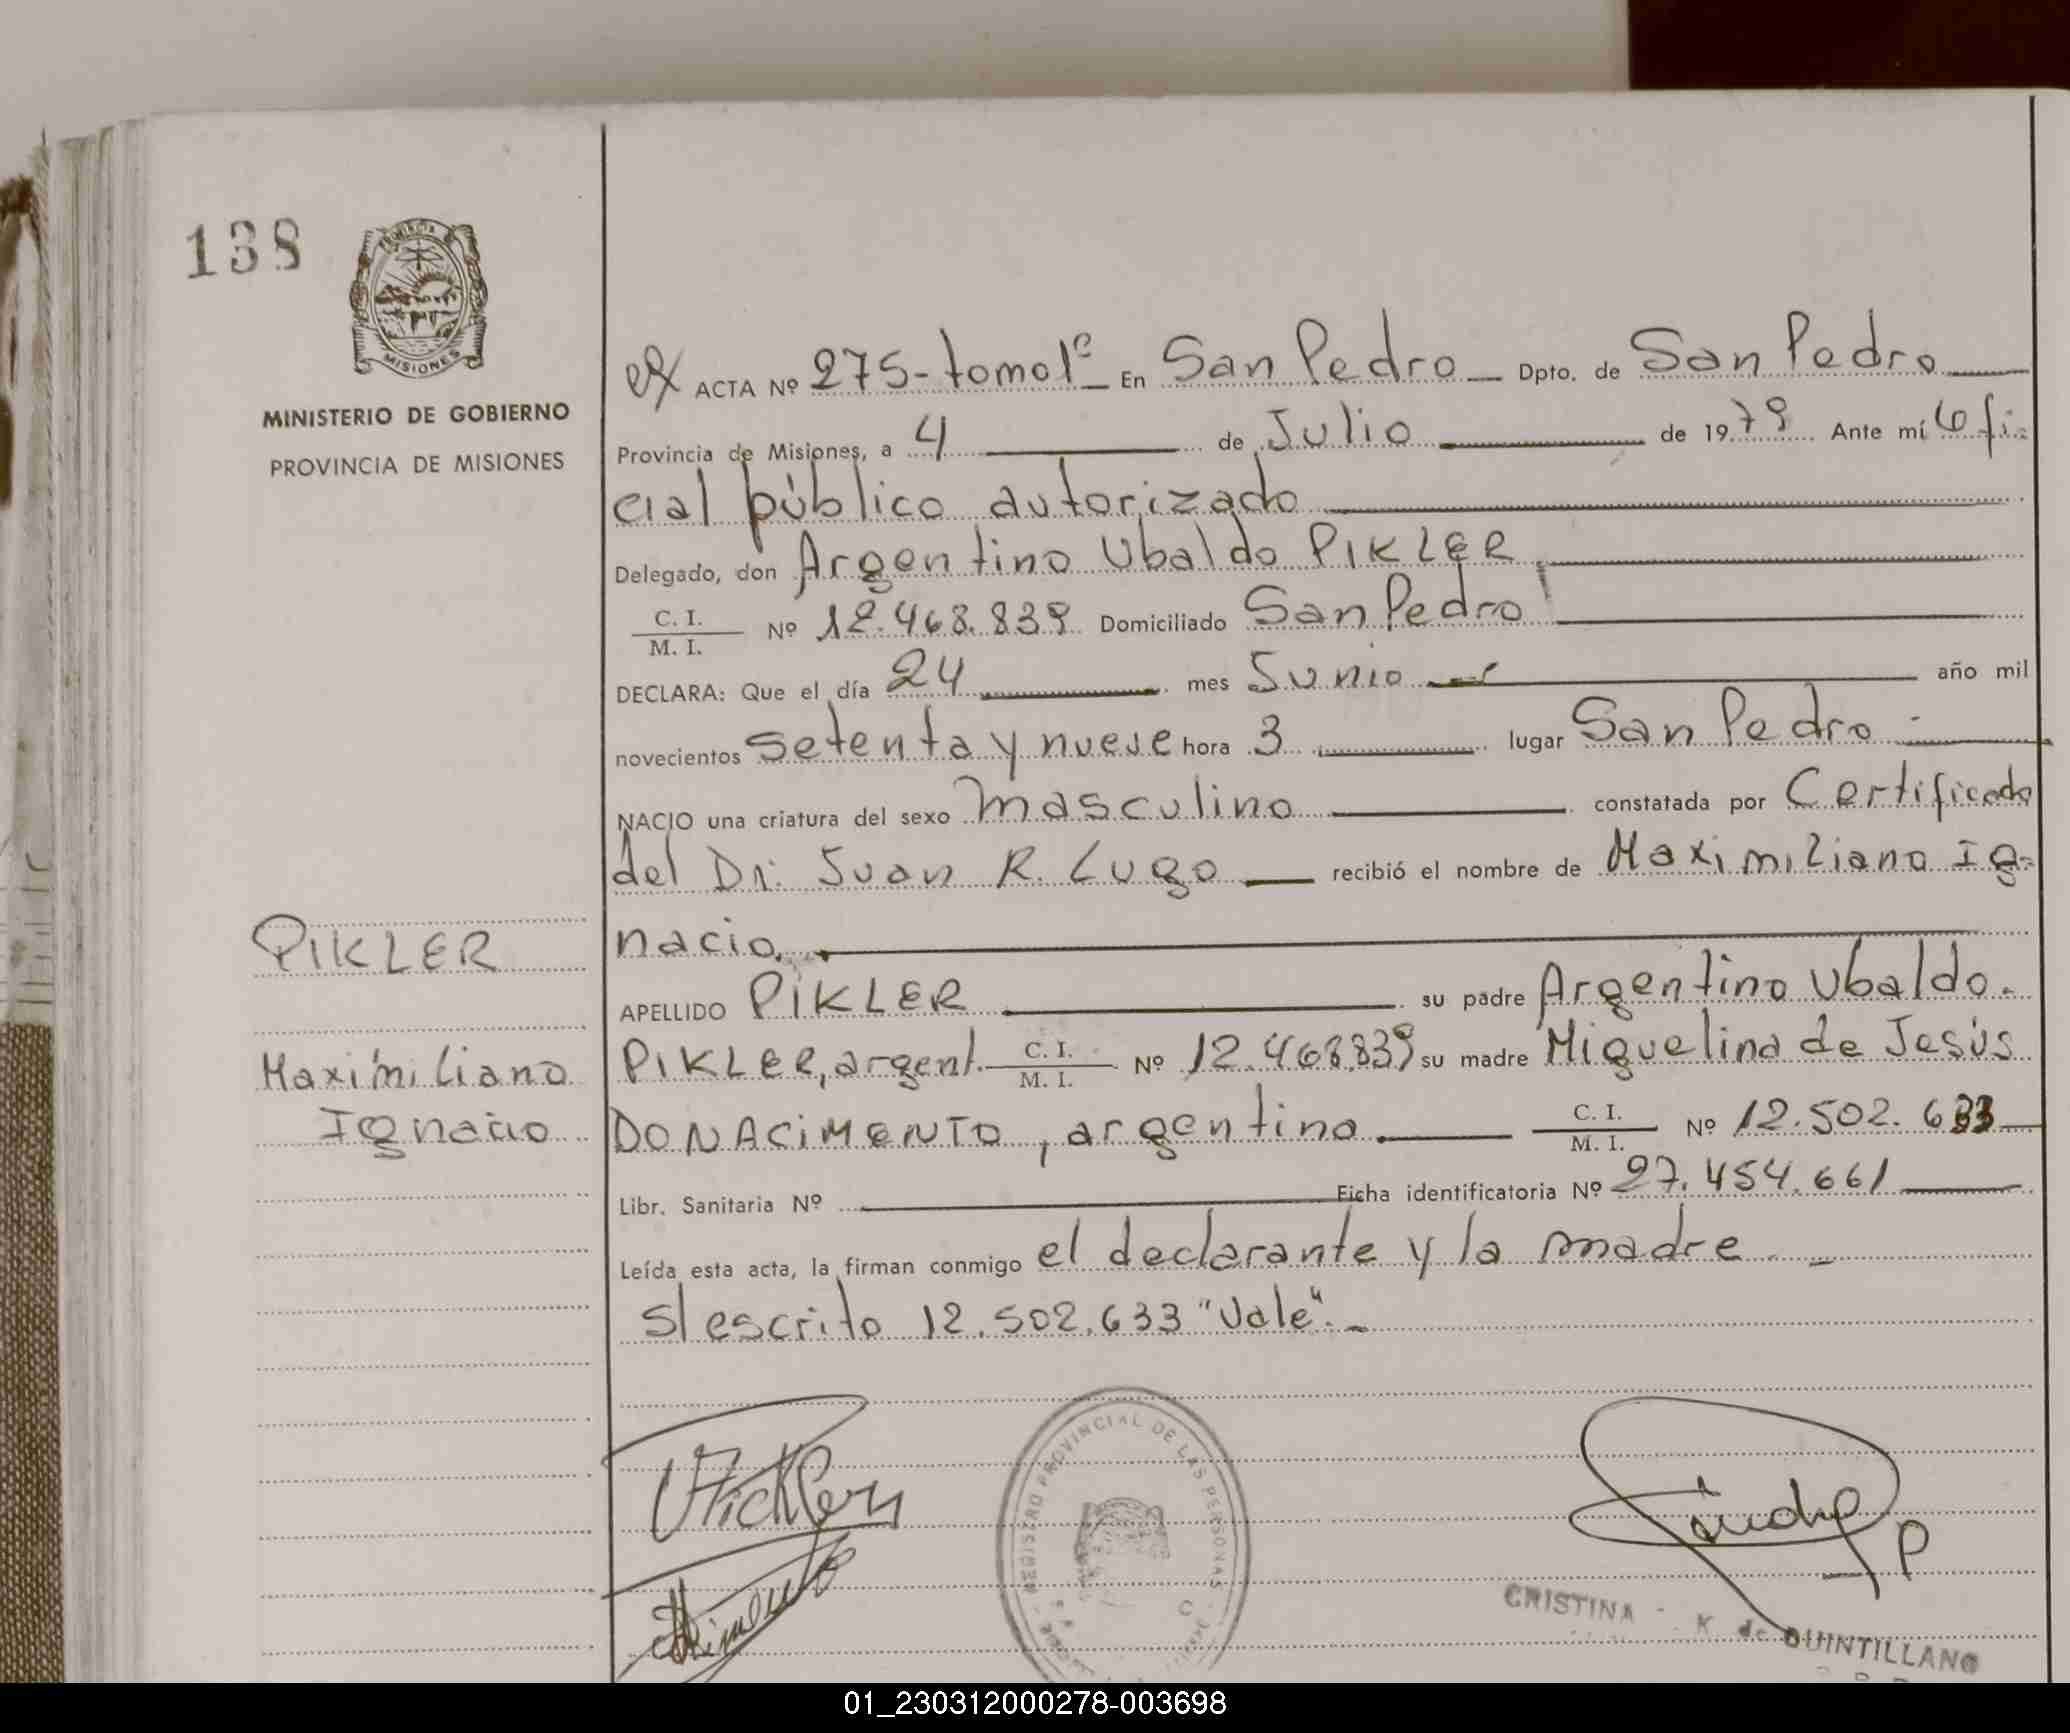 138
PROVINCIA
MISIONES
MINISTERIO DE GOBIERNO
PROVINCIA DE MISIONES
ACTA Nº 275-tomo 1º En San Pedro Dpto. de San Pedro
Provincia de Misiones, a 4 de Julio de 1979 Ante mí Ofi-
cial público autorizado
Delegado, don Argentino Ubaldo PIKLER
C. I.
M. I. Nº 12.468.839 Domiciliado San Pedro
DECLARA: Que el día 24 mes Junio año mil
novecientos setenta y nueve hora 3 lugar San Pedro
NACIO una criatura del sexo masculino constatada por Certificado
del Dr. Juan R. Lugo recibió el nombre de Maximiliano Ig-
nacio.
APELLIDO PIKLER su padre Argentino Ubaldo.
PIKLER, argent. C. I. M. I. Nº 12.468.839 su madre Miguelina de Jesús
DONACIMENTO, argentina. C. I. M. I. Nº 12.502.633
Libr. Sanitaria Nº Ficha identificatoria Nº 27.454.661
Leída esta acta, la firman conmigo el declarante y la madre
s/escrito 12.502.633 "Vale".
PIKLER
Maximiliano
Ignacio
REGISTRO PROVINCIAL DE LAS PERSONAS
CRISTINA K de QUINTILLANO
01_230312000278-003698